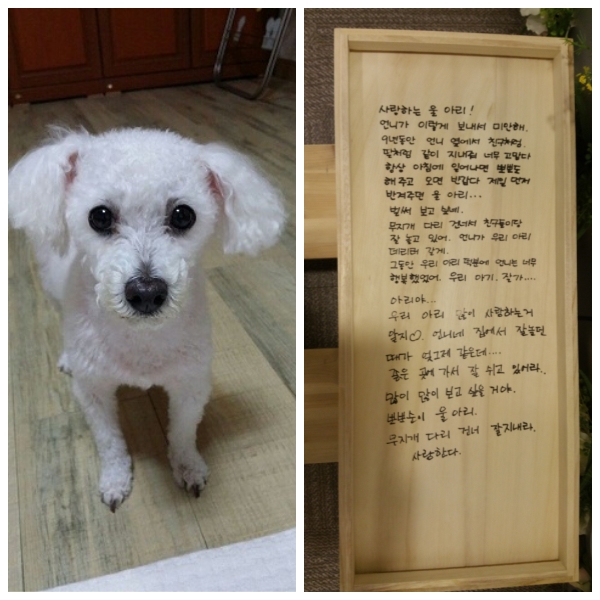 사랑하는 울 아리!
언니가 이렇게 보내서 미안해.
9년동안 언니 옆에서 친구처럼.
딸처럼 같이 지내줘 너무 고맙다
항상 아침에 일어나면 뽀뽀도
해주고 오면 반갑다 제일 먼저
반겨주면 울 아리...
벌써 보고 싶네.
무지개 다리 건너서 친구들이랑
잘 놀고 있어. 언니가 우리 아리
데리러 갈게.
그동안 우리 아리 덕분에 언니는 너무
행복했었어. 우리 아가. 잘가....
아리야...
우리 아리 많이 사랑하는거
알지♡. 언니네 집에서 잘놀던
때가 엊그제 같은데....
좋은 곳에 가서 잘 쉬고 있어라..
많이 많이 보고 싶을 거야.
뽀뽀순이 울 아리.
무지개 다리 건너 잘지내라.
사랑한다.